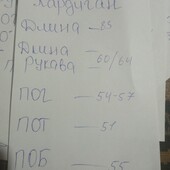 Кардиган
Длина — 85
Длина
Рукава — 60/64
ПОГ — 54-57
ПОТ — 51
ПОБ — 55